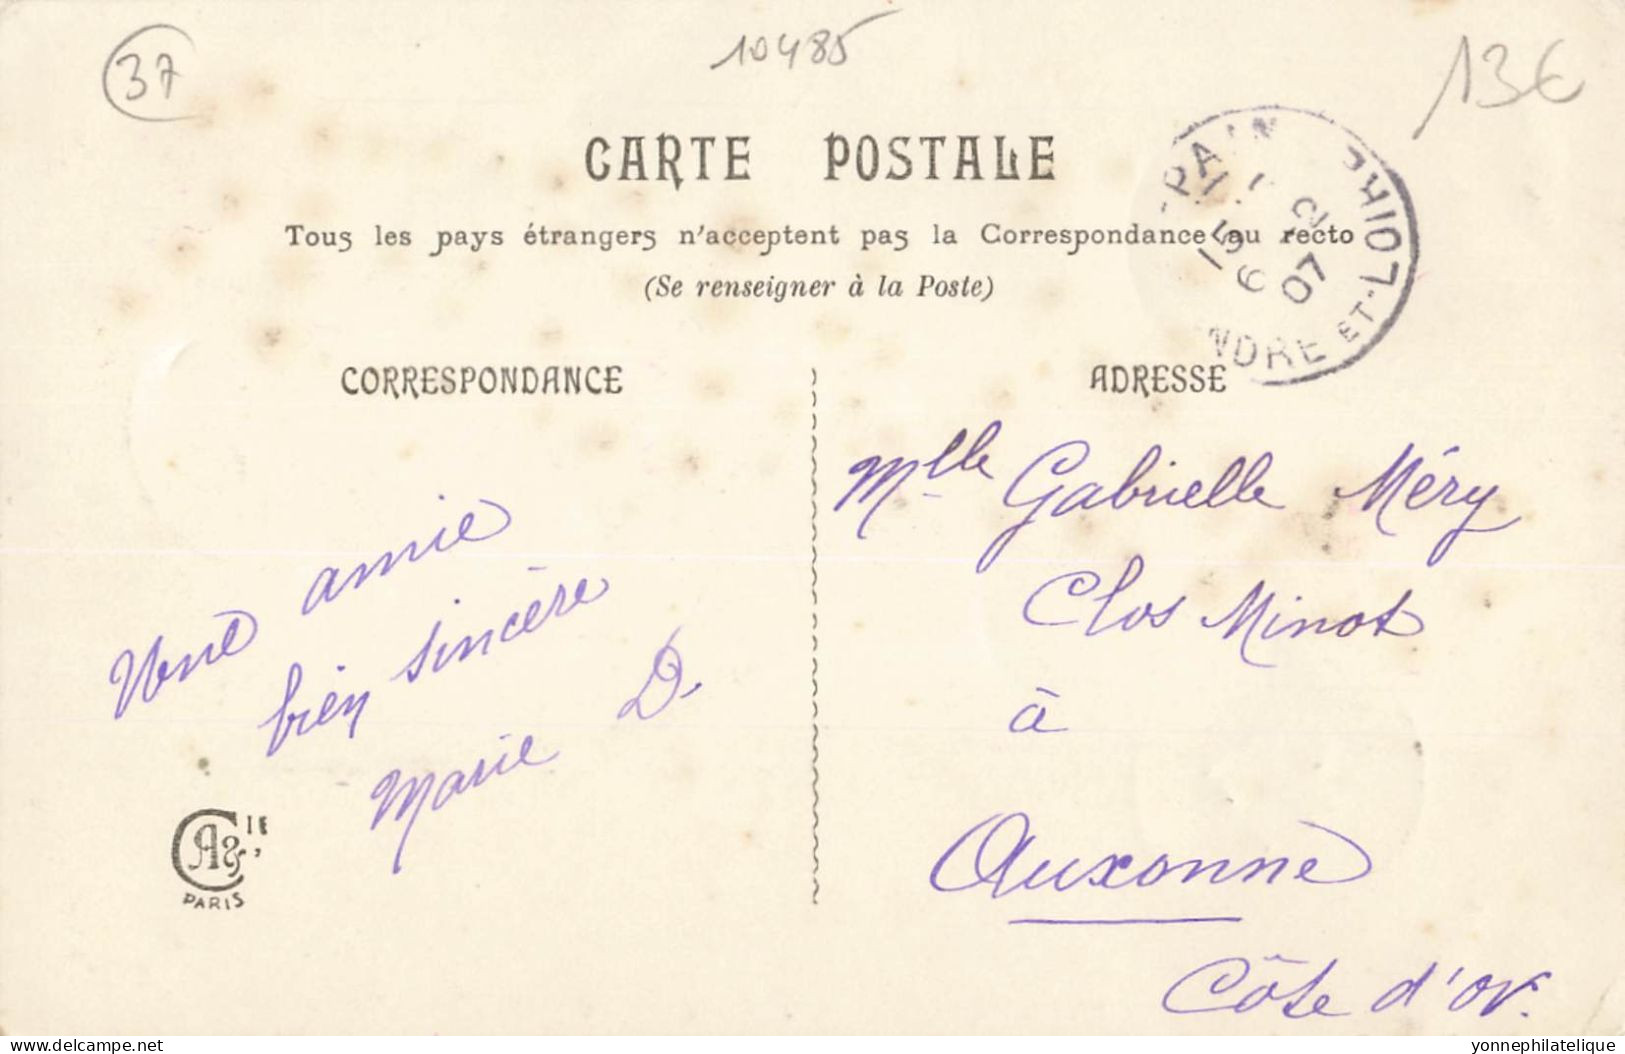 37
10485
13€
CARTE POSTALE
Tous les pays étrangers n'acceptent pas la Correspondance au recto
(Se renseigner à la Poste)
CORRESPONDANCE
ADRESSE
-PAIN
15 6 07
NDRE-ET-LOIRE
Une amie
bien sincère
Marie D.
Mlle Gabrielle Méry
Clos Minot
à
Auxonne
Côte d'or.
A & Cie
PARIS
yonnephilatelie delcampe.net